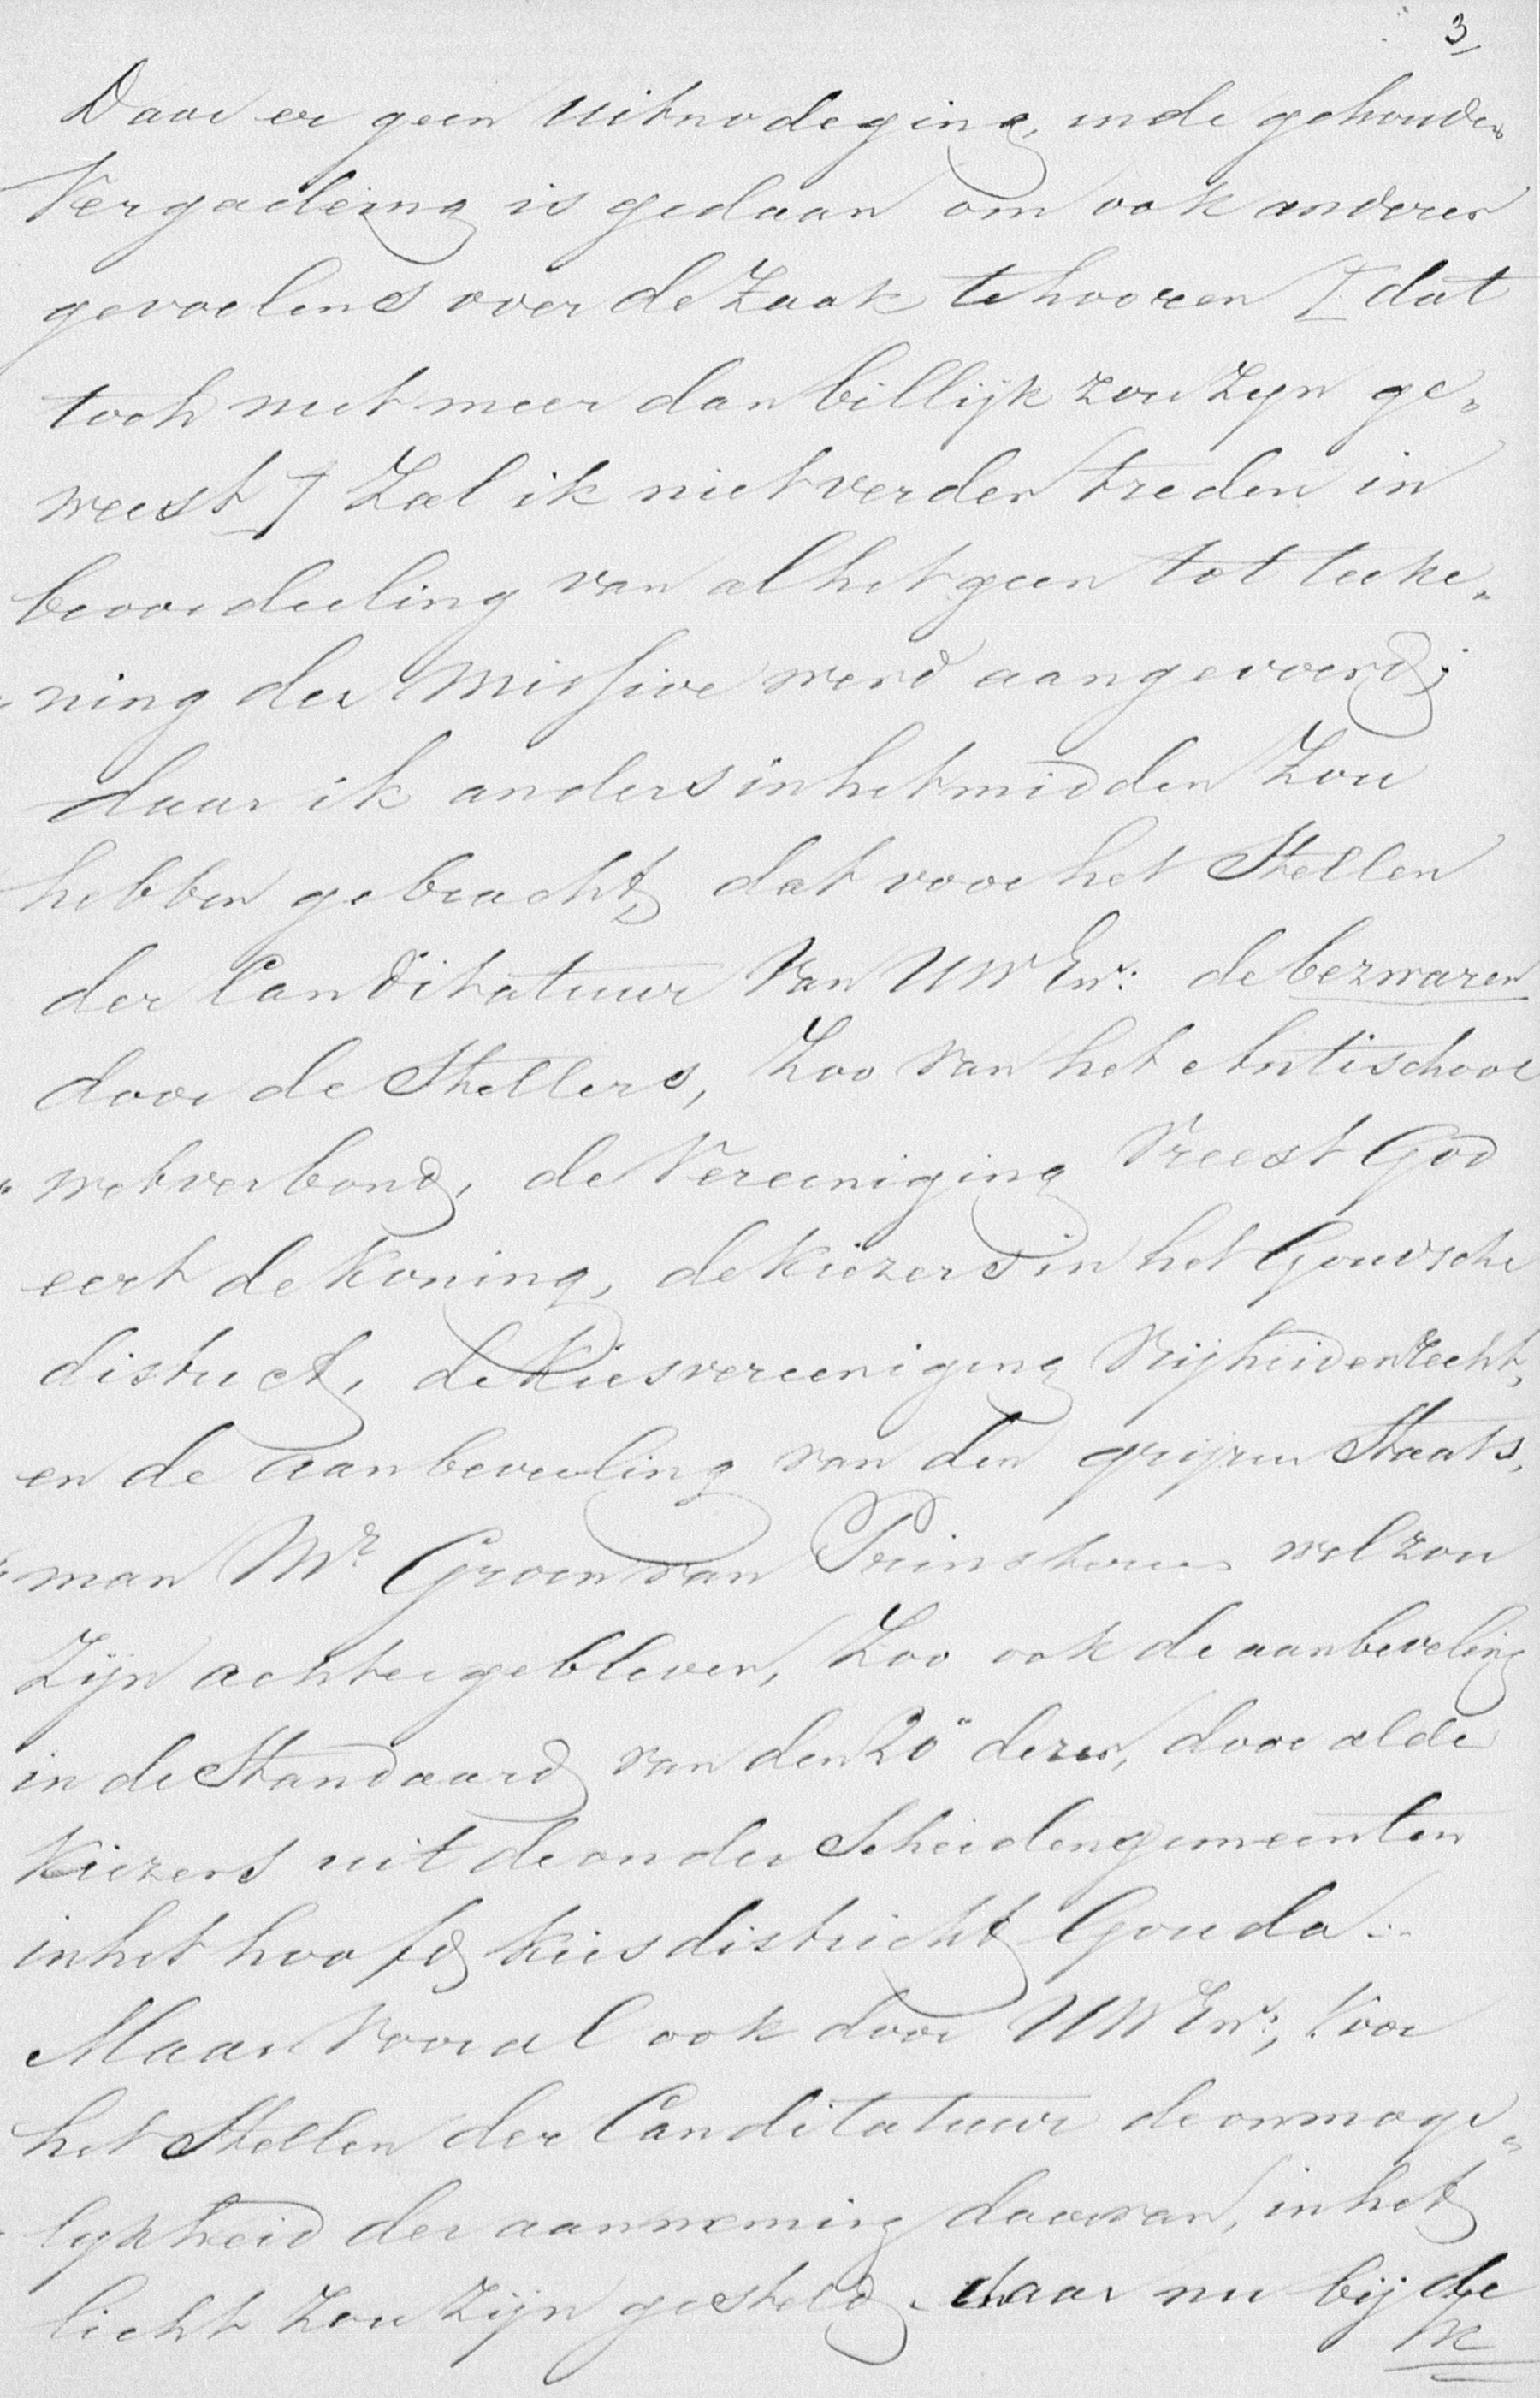 3,
Daar er geen Uitnodeging, in de gehouden
Vergadering is gedaan om ook anderer
gevoelens over de Zaak te hooren [dat
toch niet meer dan billijk zou Zyn ge„
weest] Zal ik niet verder treden in
beoordeeling van al het geen tot teeke„
„ning der Missive werd aangevoerd;
daar ik anders in het midden Zou
hebben gebracht, dat voor het Stellen
der Canditatuur Van UWEw: de bezwaren
door de Stellers, Zoo van het Antischool
„wetverbond, de Vereeniging Vreest God
eert de Koning, de Kiezers in het Goudsche
district, de Kiesvereeniging Vrijheid en Recht,
en de aanbeveeling van den grijzen Staats„
„man Mr Groen van Prinsterer wel zou
Zijn achtergebleven, Zoo ook de aanbeveling
in de Standaard van den 20" dezer, door al de
Kiezers uit de onder Scheiden gemeenten
in het hoofd Kiesdistricht Gouda.
Maar Vooral ook door UWEw:, Voor
het Stellen der Canditatuur de onmoge„
„lykheid der aanneming daarvan, in het
licht Zou Zijn gesteld. daar nu bij de